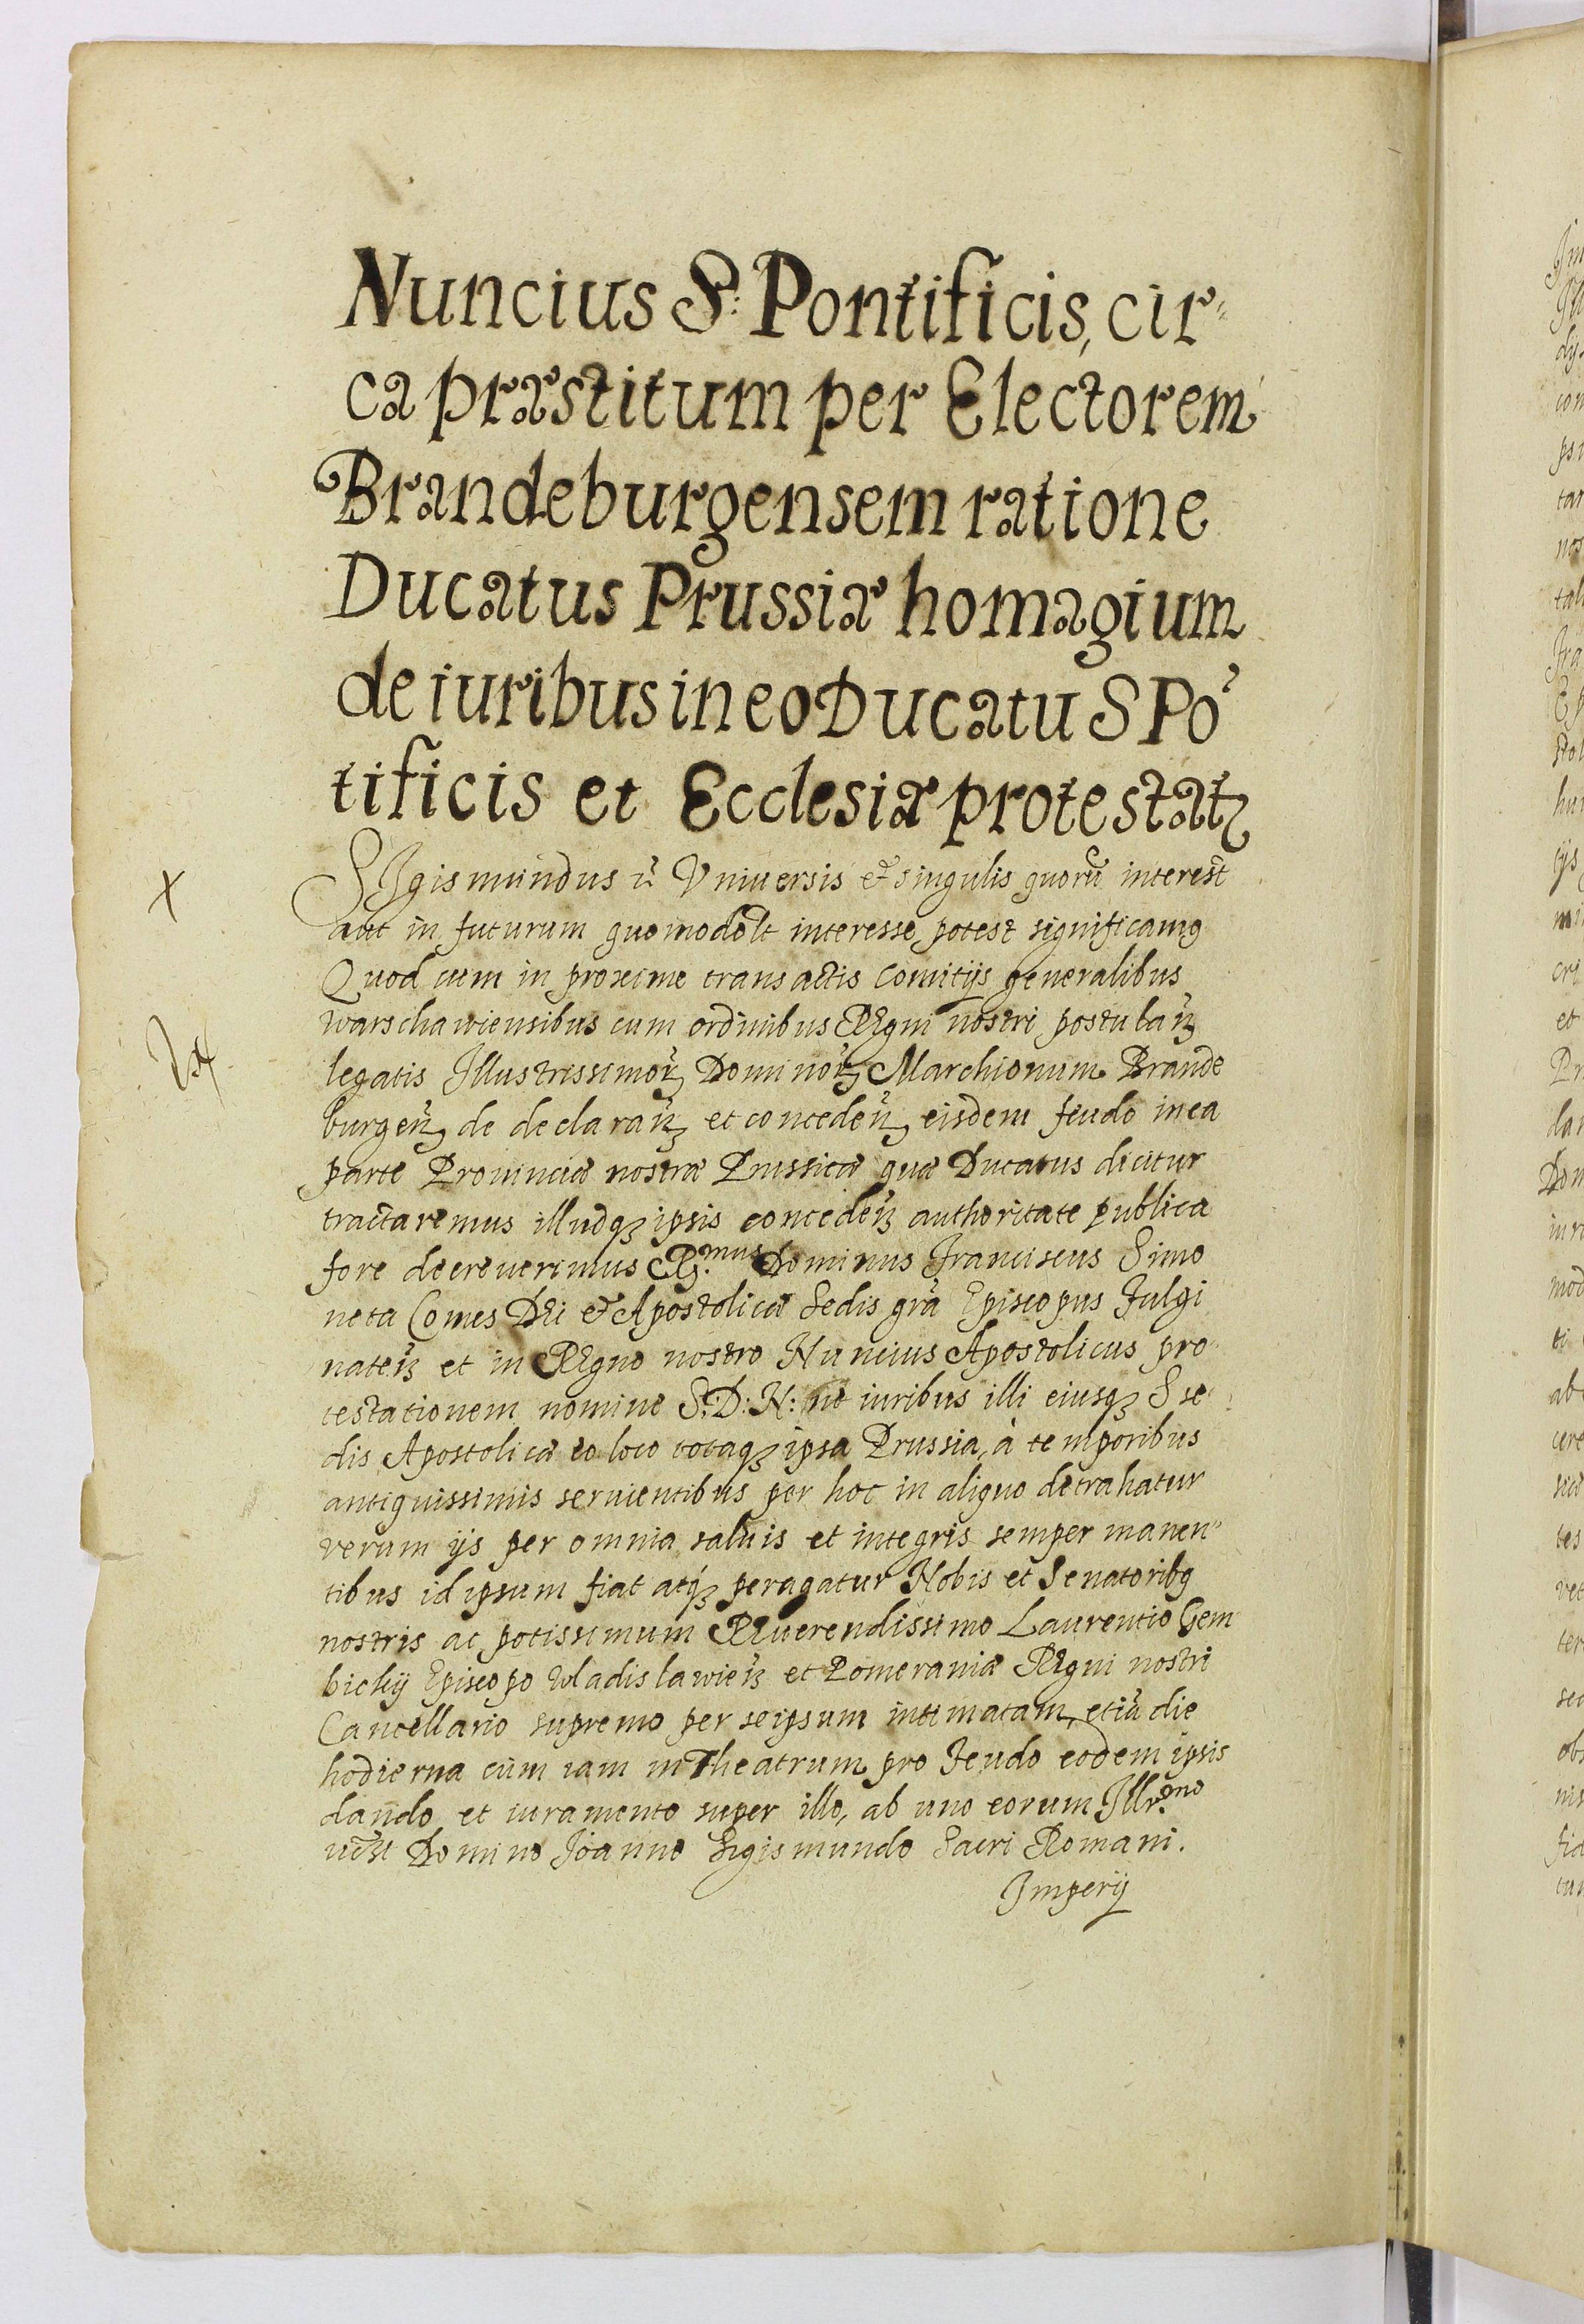 Nuncius S: Pontificis, cir-
ca præstitum per Electorem
Brandeburgensem ratione
Ducatus Prussiæ homagium
de iuribus in eo Ducatu S Põ
tificis et Ecclesiæ protestatꝫ
SIgismundus ꝛc̃ Vniuersis et singulis quorũ interest
aut in futurum quomodolt interesse potest significamꝰ
Quod cum in proxime transactis Comitijs generalibus
warschawiensibus cum ordinibus Regni nostri postulañꝫ
legatis Illustrissimorꝫ Dominorꝫ Marchionum Brande
burgeñꝫ de declarañꝫ et concedeñꝫ eisdem feudo in ea
parte Prouinciæ nostræ Prussicæ quæ Ducatus dicitur
tractaremus illudqꝫ ipsis concedeñꝫ authoritate publica
fore decreuerimus R.mus Dominus Franciscus Simo
neta Comes Dei et Apostolicæ Sedis grã Episcopus Fulgi
nateñꝫ et in Regno nostro Nuncius Apostolicus pro
testationem nomine S: D: N: ne iuribus illi eiusqꝫ S se
dis Apostolicæ eo loco totaqꝫ ipsa Prussia, à temporibus
antiquissimis seruientibus per hoc in aliquo detrahatur
verum ijs per omnia saluis et integris semper manen-
tibus id ipsum fiat atqꝫ peragatur Nobis et Senatoribꝰ
nostris ac potissimum Reuerendissimo Laurentio Gem
bickÿ Episcopo Wladislawieñꝫ et Pomeraniæ Regni nostri
Cancellario supremo per seipsum intimatam, etiã die
hodierna cùm iam in Theatrum pro Feudo eodem ipsis
dando et iuramento super illo, ab uno eorum Illr.mo
Domino Joanne Sigismundo Sacri Romani.
Imperij